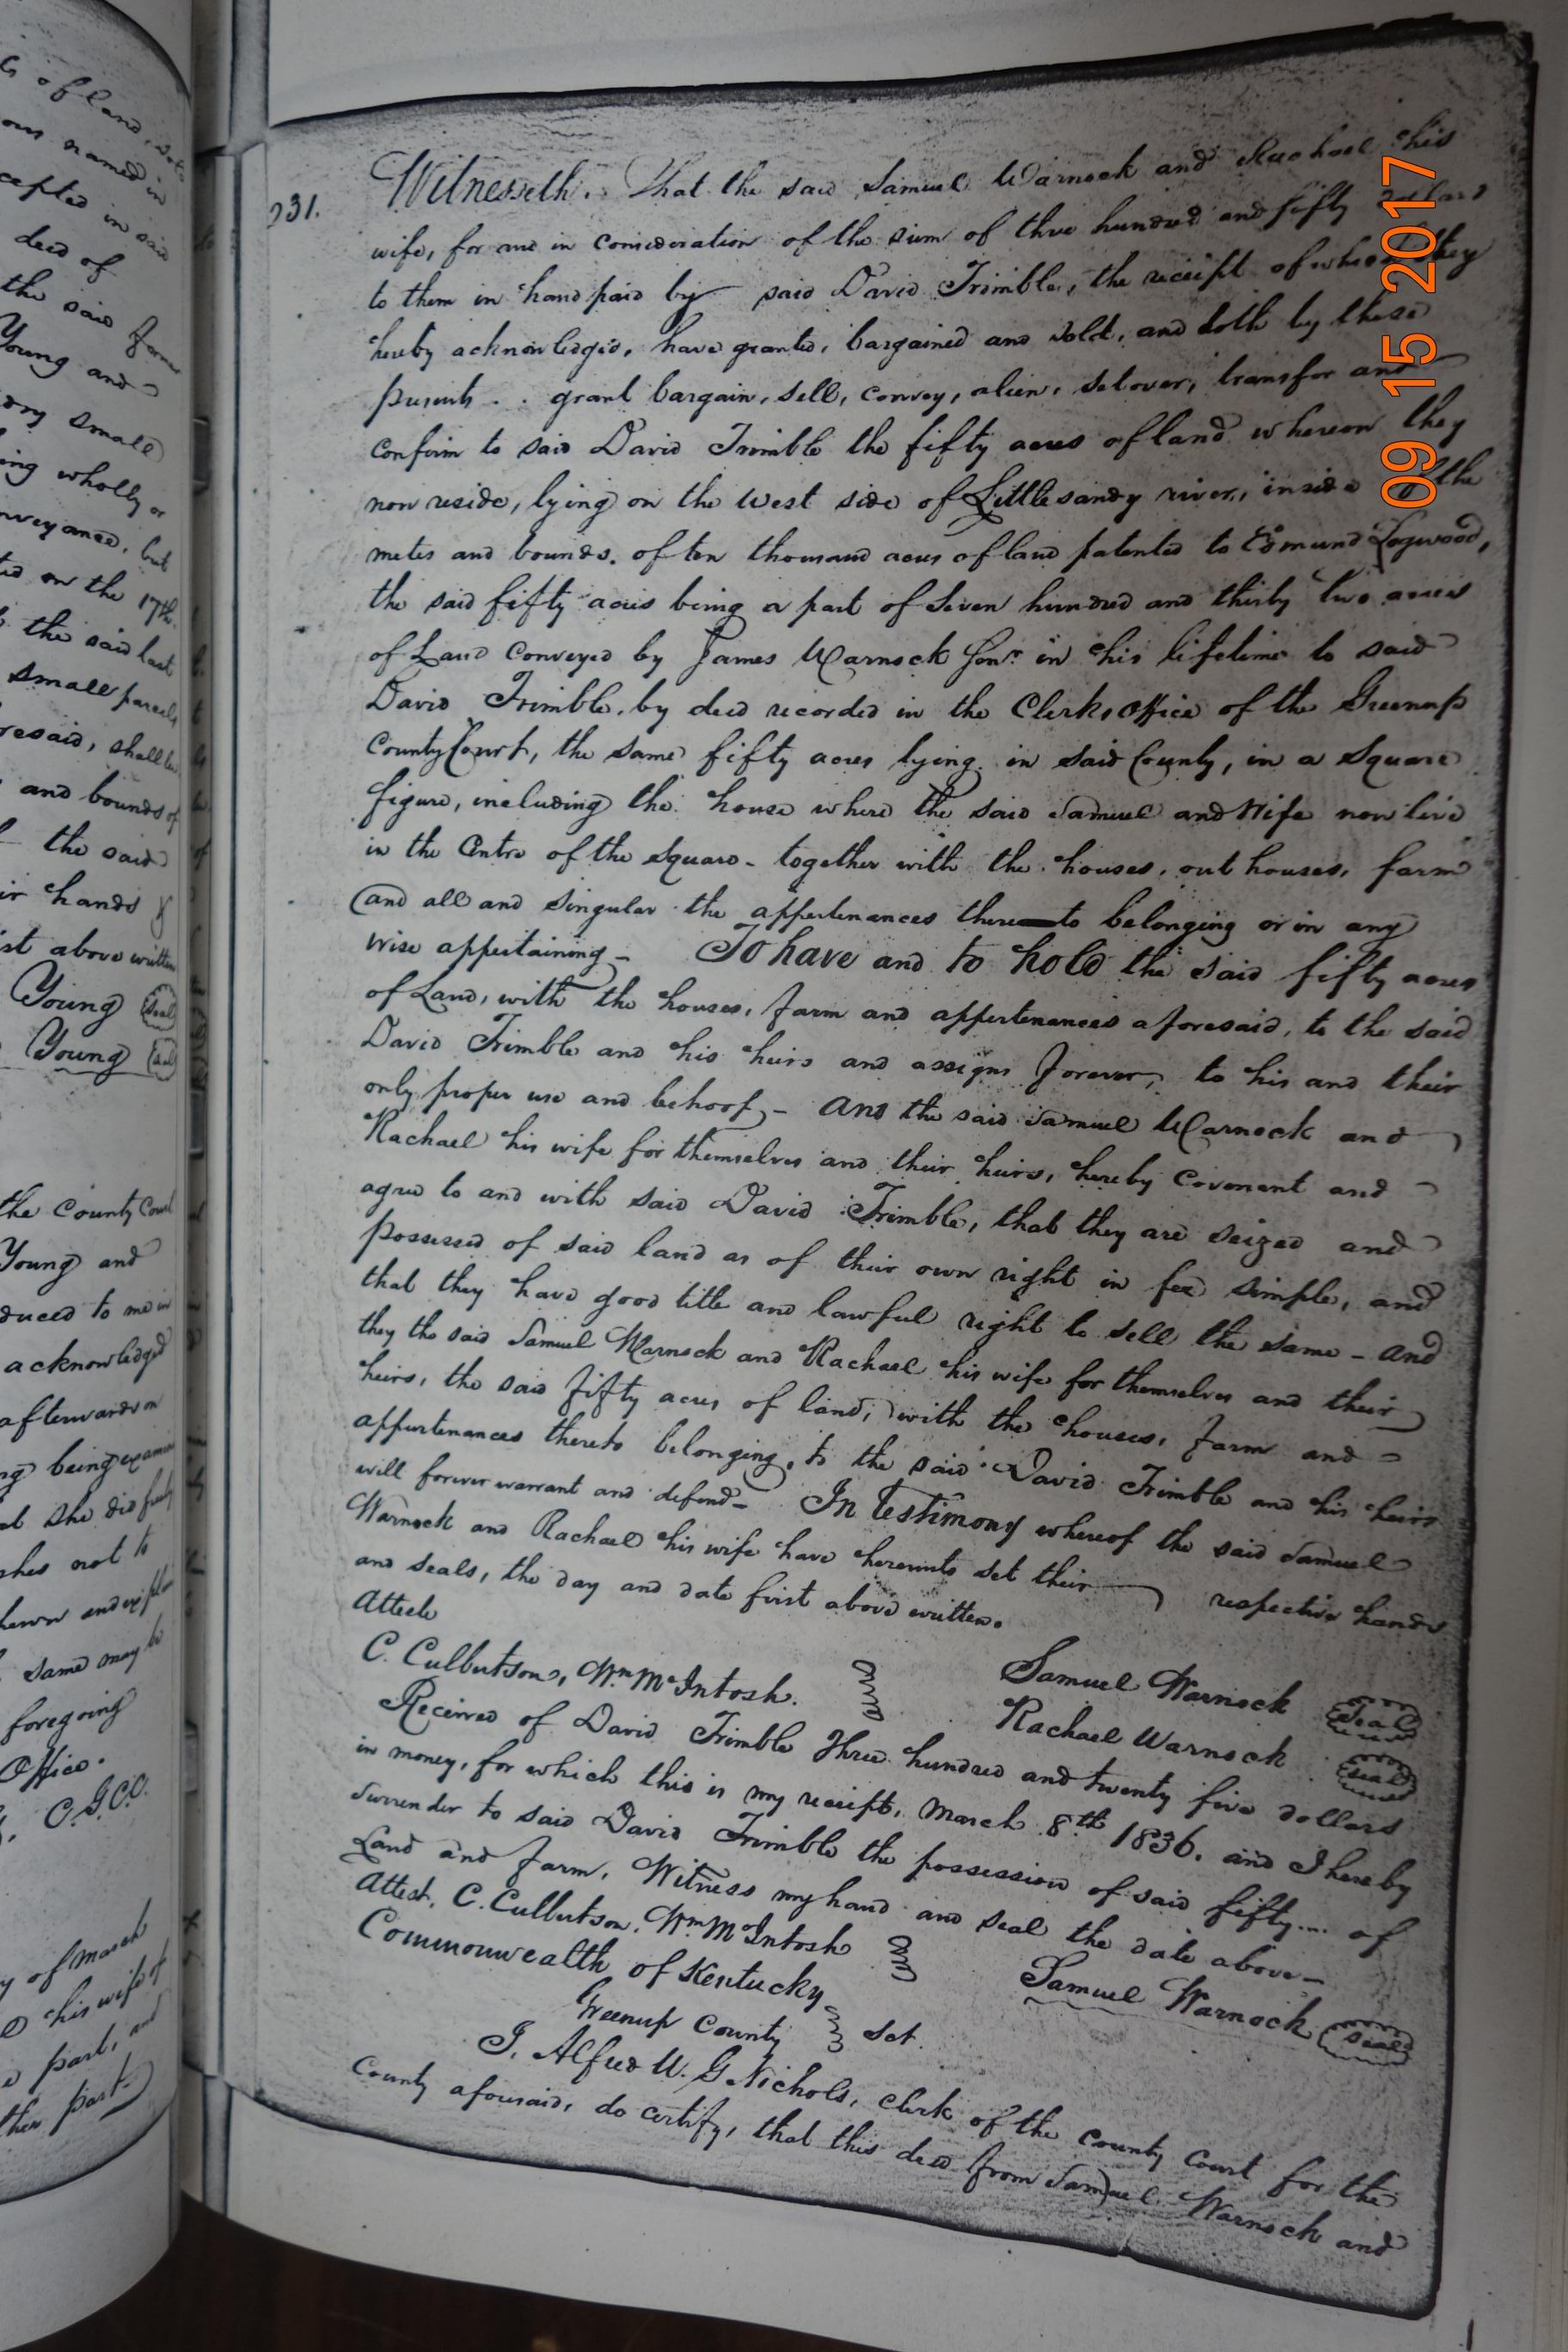 ts of land, 
ous named in
cepted in said
deed of
the said 
Young and
small
ing wholly or
nveyance, but
ted on the 17th
the said last
small parcels
resaid, shall be
and bounds of
the said
ir hands &
st above written
Young Seal
Young Seal
the County Court
Young and
duced to me in
acknowledged
afterwards on
ng being examin
at she did freely
shes not to
hewn and explain
same may be
foregoing
Office.
C.G.C.C.
y of march
his wife of
part, and
ther part
231.
Witnesseth. That the said Samuel Warnock and Rachael his
wife, for and in consideration of the sum of three hundred and fifty dollars
to them in hand paid by said David Trimble, the receipt of which they
hereby acknowledged, have granted, bargained and sold, and doth by these
presents . . grant bargain, sell, convey, alien, set over, transfer and
confirm to said David Trimble the fifty acres of land whereon they
now reside, lying on the west side of Little sandy river, inside of the
metes and bounds. of ten thousand acres of land patented to Edmund Logwood,
the said fifty acres being a part of Seven hundred and thirty two acres
of Land Conveyed by James Warnock Senr in his lifetime to said
David Trimble, by deed recorded in the Clerks office of the Greenup
County Court, the same fifty acres lying in said County, in a Square
figure, including the house where the said Samuel and Wife now live
in the Centre of the square - together with the houses, out houses, farm
and all and singular the appertenances thereto belonging or in any
wise appertaining - To have and to hold the said fifty acres
of Land, with the houses, farm and appertenances aforesaid, to the said
David Trimble and his heirs and assigns forever, to his and their
only proper use and behoof, - And the said Samuel Warnock and
Rachael his wife for themselves and their heirs, hereby Covenent and
agree to and with said David Trimble, that they are seized and
possessed of said land as of their own right in fee simple, and
that they have good title and lawful right to sell the same - and
they the said Samuel Warnock and Rachael his wife for themselves and their
heirs, the said fifty acres of land, with the houses, farm and
appurtenances thereto belonging, to the said David Trimble and his heirs
will forever warrant and defend - In testimony whereof the said Samuel
Warnock and Rachael his wife have hereunto set their respective hands
and seals, the day and date first above written.
Atteste
C. Culbertson, Wm McIntosh. Samuel Warnock Seal
Rachael Warnock Seal
Received of David Trimble Three hundred and twenty five dollars
in money, for which this is my receipt, March 8th 1836. and I hereby
surrender to said David Trimble the possession of said fifty.... of
Land and farm, Witness my hand and seal the date above -
Attest, C. Culbertson, Wm McIntosh Samuel Warnock Seal
Commonwealth of Kentucky
Greenup County Sct.
I, Alfred W. G Nichols, clerk of the County Court for the
County aforesaid, do certify, that this deed from Samuel Warnock and
09 15 2017